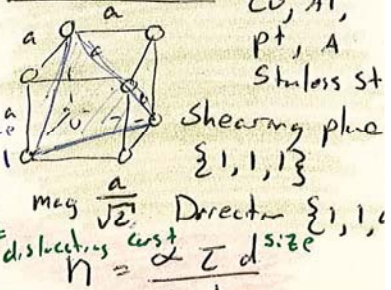 a
a
Cu, Al,
pt, A
Stnless st
a
Shearing plane
{1,1,1}
mag a/√2 Direction {1,1,
dislocating const
n = α τ d size